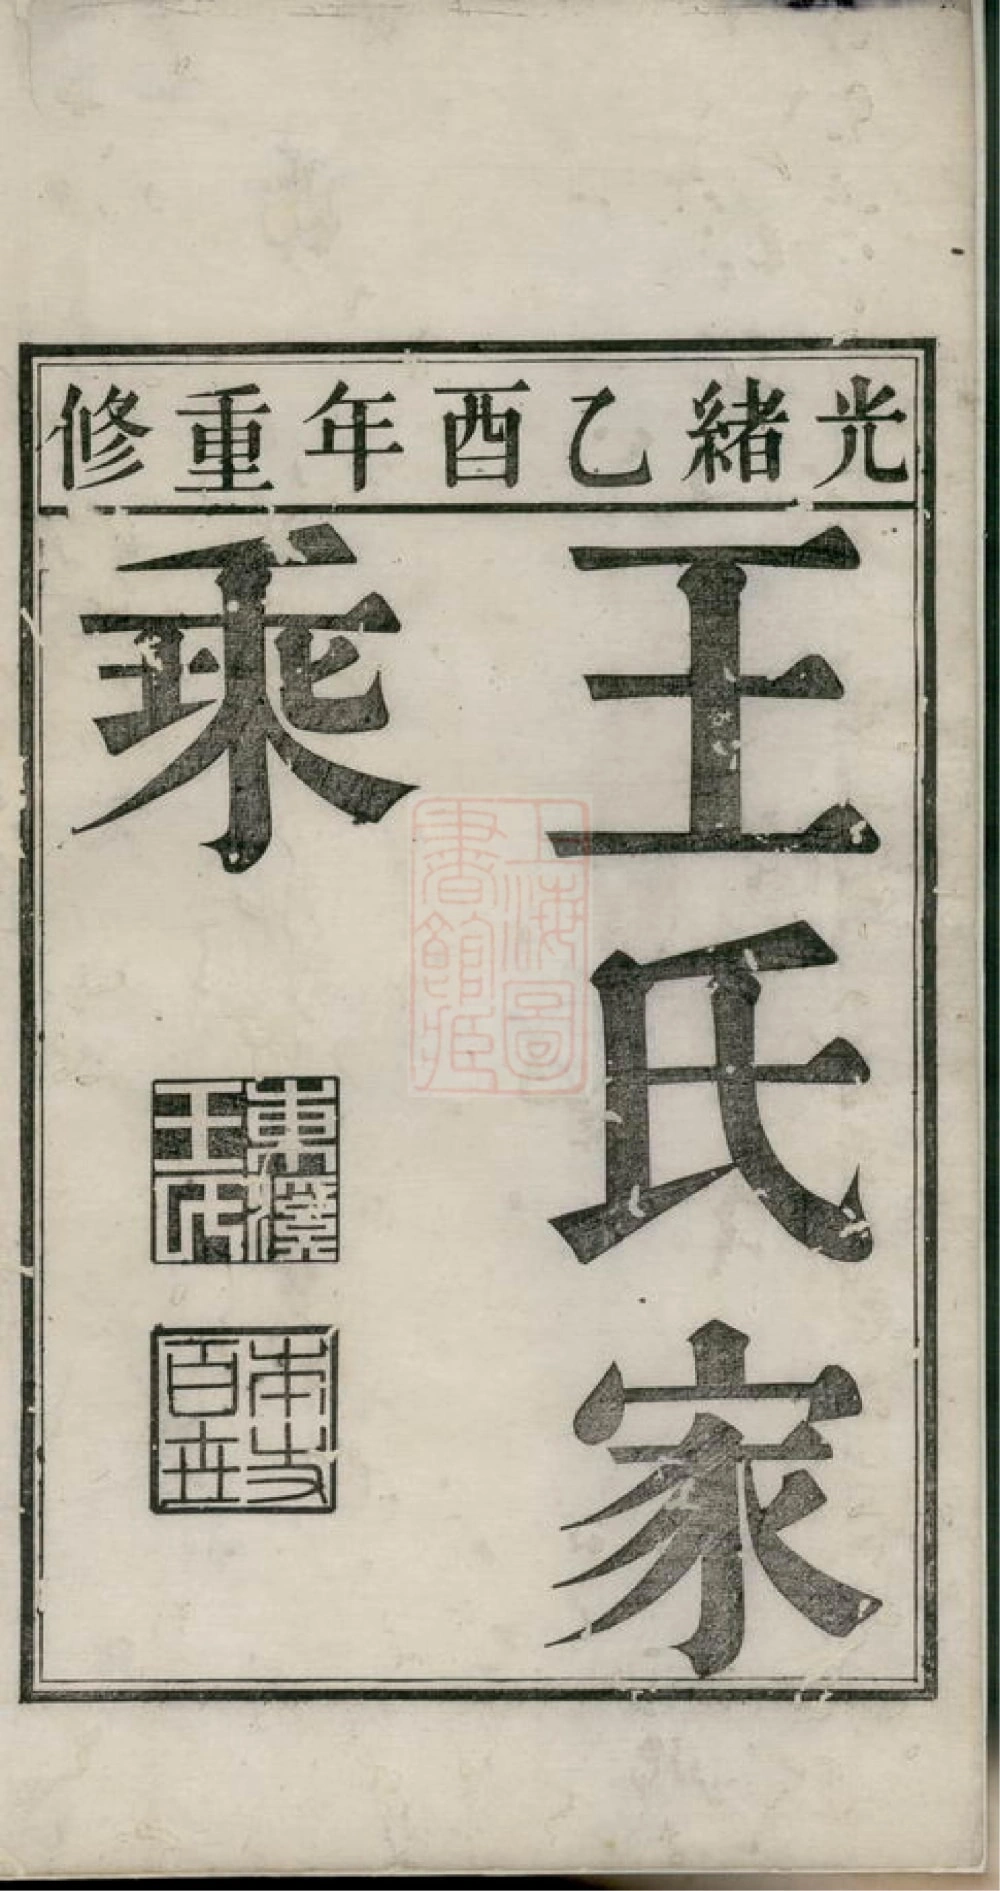 光緒乙酉年重修
王氏家
乘
東溪
王氏
本支
百世
上海圖
書館藏